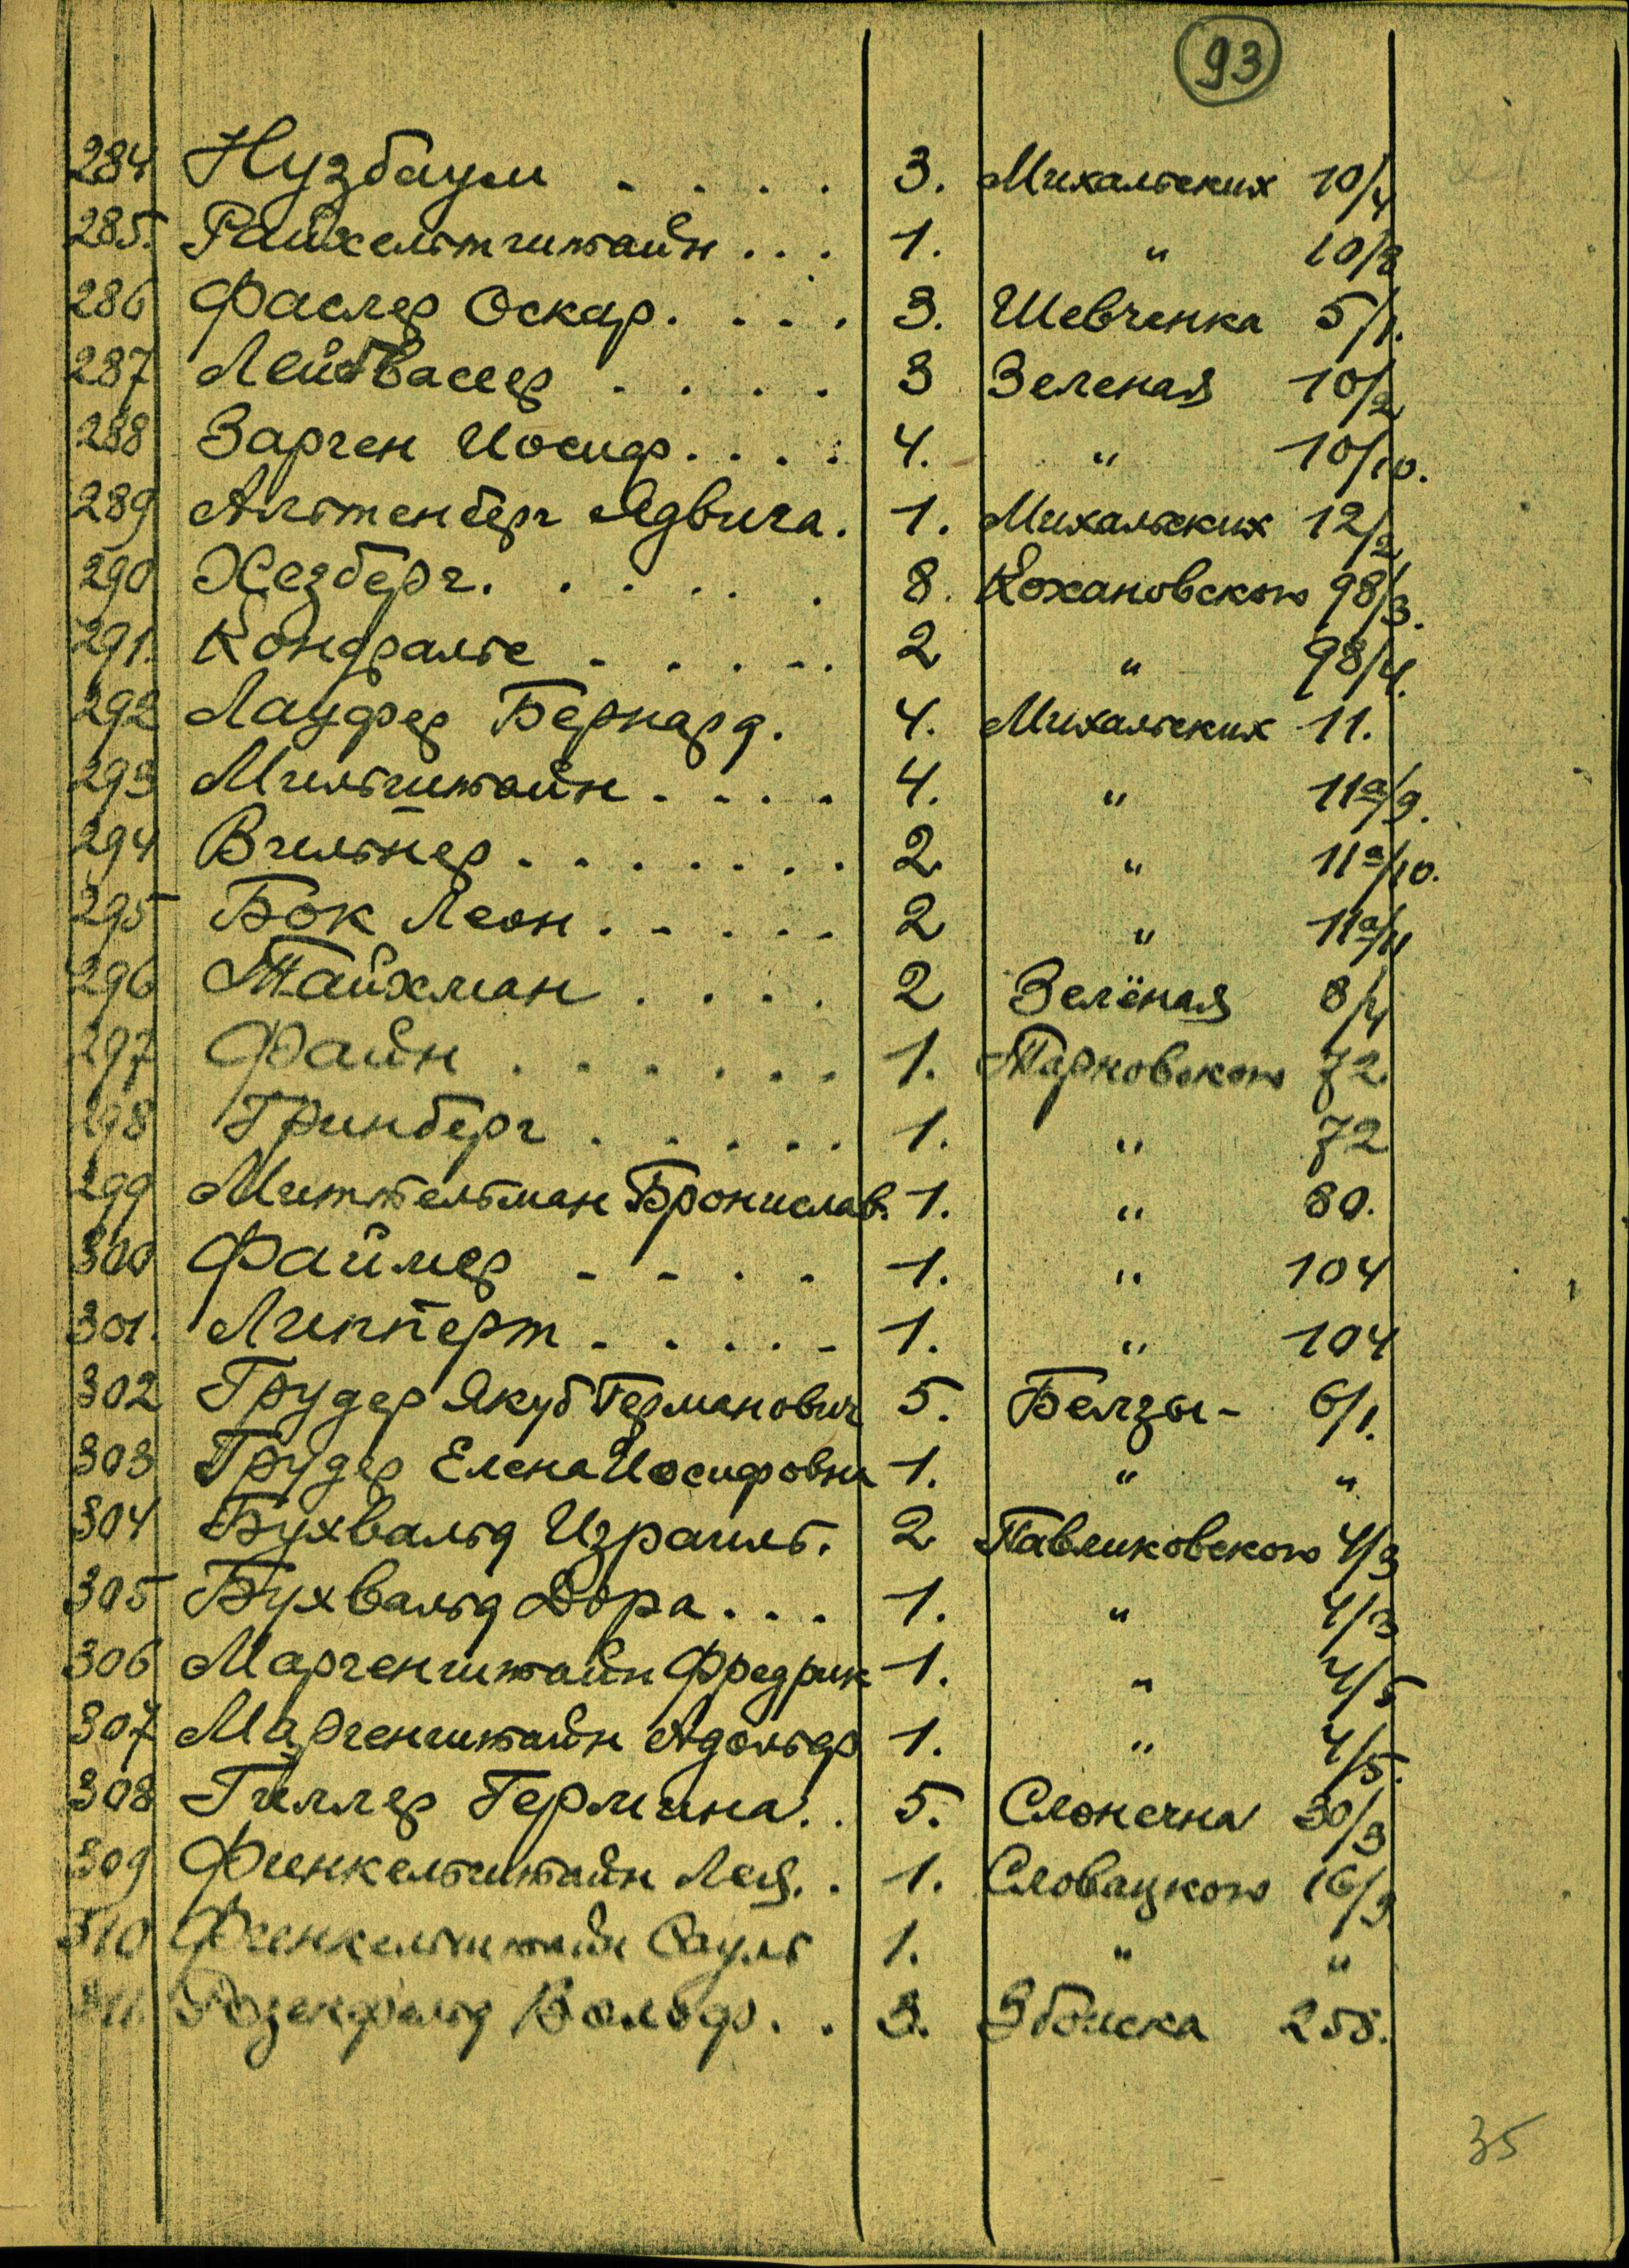 93
284 Нузбаум . . . . 3. Михальских 10/4
285. Райхельтштайн . . . 1. " 10/8
286 Фаслер Оскар . . . . 3. Шевченка 5/1.
287 Лейбвасер . . . . 3 Зеленая 10/2
288 Зарген Иосиф . . . . 4. " 10/10.
289 Альтенберг Ядвига. 1. Михальских 12/2
290 Хезберг . . . . . . 8. Кохановского 98/3.
291. Кондралье . . . . . 2 " 98/4.
292 Лауфер Бернард. 4. Михальских 11.
293 Мильштайн . . . . 4. " 11а/9.
294 Вильнер . . . . . . . 2 " 11а/10.
295 Бок Леон . . . . . 2 " 11а/11
296 Тайхман . . . . 2 Зелёная 8/4
297 Файн . . . . . . 1. Тарновского 72
298 Гринберг . . . . . 1. " 72
299 Миттельман Бронислав. 1. " 80.
300 Файмер - - . . 1. " 104
301. Липперт . . . . . 1. " 104
302 Грудер Якуб Германович 5. Белзы- 6/1.
303 Грудер Елена Иосифовна 1. " "
304 Бухвальд Израиль. 2 Павликовского 4/3
305 Бухвальд Дора . . . 1. " 4/3
306 Маргенштайн Фредрик 1. " 4/5
307 Маргенштайн Адольф 1. " 4/5.
308 Гиллер Гермина . . 5. Слонечна 30/3
309 Финкельштайн Лея. . 1. Словацкого 16/3
310 Финкельштайн Сауль 1. " "
311. Розенфельд Вольф . . 3. Збоиска 258.
35